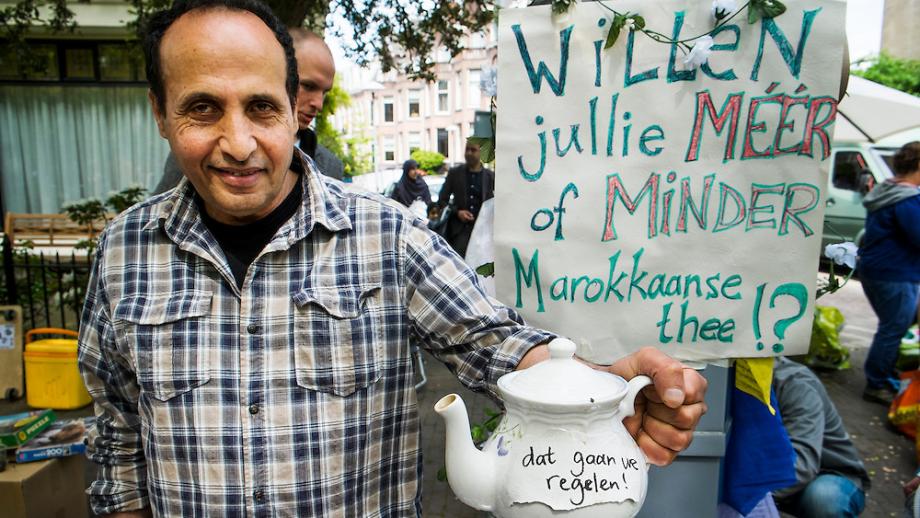 WiLLEN
jullie MÉÉR
of MiNDER
Marokkaanse
thee!?
dat gaan we
regelen!
PUZZLE
200